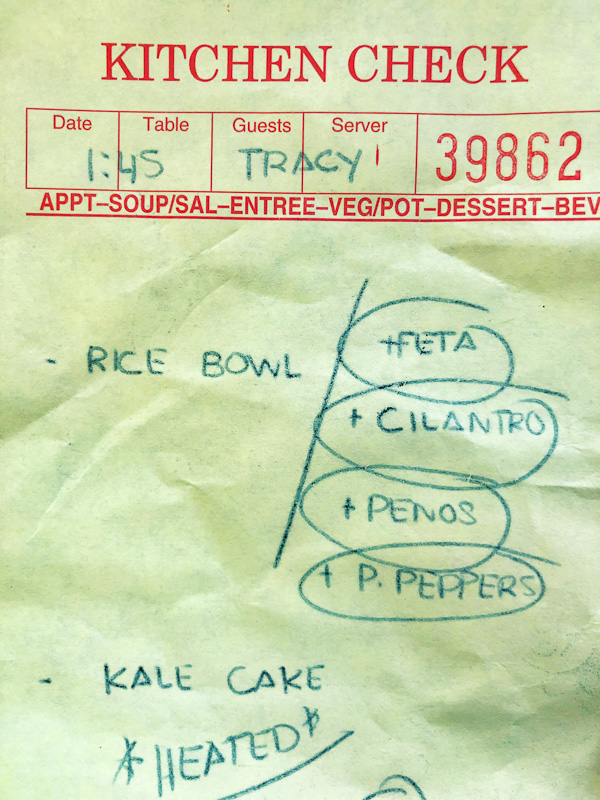 KITCHEN CHECK
Date Table Guests Server 39862
1:45 TRACY
APPT–SOUP/SAL–ENTREE–VEG/POT–DESSERT–BEV
+FETA
- RICE BOWL
+ CILANTRO
+ PENOS
+ P. PEPPERS
- KALE CAKE
*HEATED*